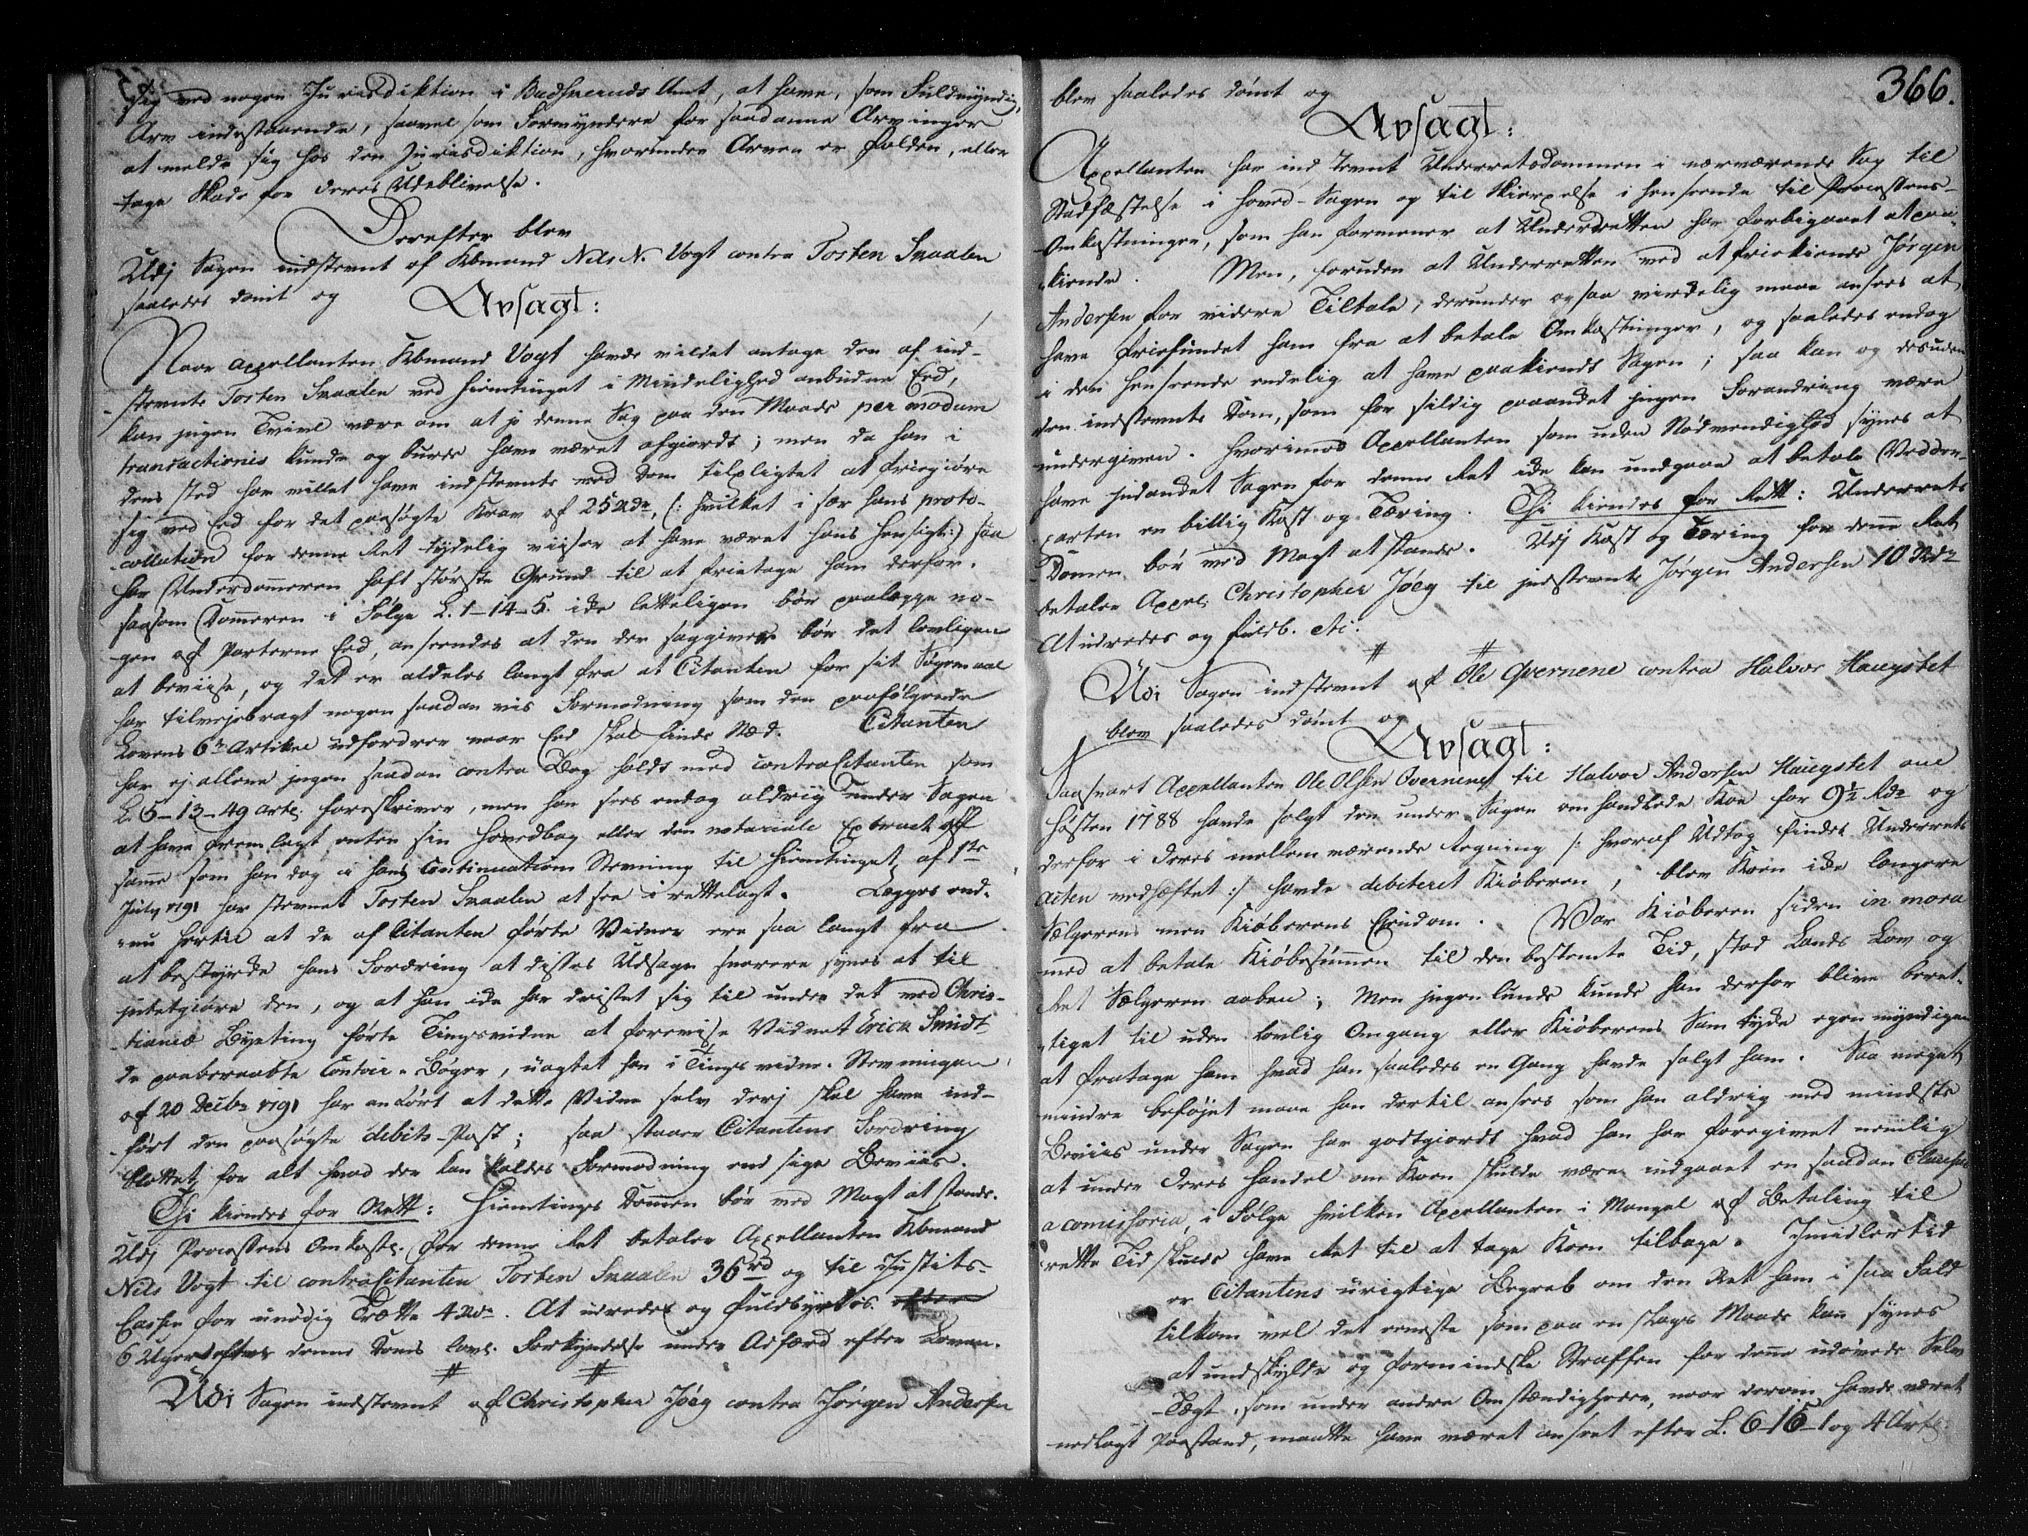 sig ved nogen Jurisdiktion i Budsfieruds Amt, at have, som Fuldmyndig,
Arv indestaaende, saavel som Formyndere for saadanne Arvinger
at melde sig hos den Jurisdiktion, hvorunder Arven er falden, eller
tage Skade for deres Udeblivelse.
Derefter blev
Udj Sagen indstevnt af Kbmand Nils N. Vogt contra Torsten Smaalen
saaledes dømt og
Avsagt:
Naar Appellanten Kbmand Vogt havde vildet antage den af ind-
stevnte Torsten Smaalen ved Hiemtinget i Mindelighed anbudne Eed,
kan jngen Tvivl være om at jo denne Sag paa den Maade per modum
transactionis kunde og burde have været afgiordt; men da han i
dens sted har villet have indstevnte ved Dom tilpligtet at friegiøre
sig ved Eed for det paasøgte Krav af 25 Rdr, (: hvilket i sær hans proto-
collation for denne Ret tydelig viiser at have været hans Hensigt:) saa
har Underdommeren haft største Grund til at frietage ham derfor.
saasom Dommeren i Følge L. 1-14-5. ikke letteligen bør paalægge no-
gen af Parterne Eed, anseendes at den der saggiver bør det lovligen
at beviise, og det er aldeles langt fra at Citanten for sit Søgemaal
har tilvejebragt nogen saadan vis Formodning som den paafølgende
Lovens 6te Artikel udfordrer naar Eed skal finde Sted. Citanten
har ej allene jngen saadan contra Bog holdt med contracitanten som
L. 5-13-49 artl. foreskriver, men han sees endog aldrig under Sagen
at have fremlagt enten sin Hovedbog eller den notariale Extract af
samme som han dog i hans Continuations Stevning til Hiemtinget af 1te
July 1791 har stevnet Torsten Smaalen at see i rettelagt. Lægges end-
nu hertil at de af Citanten førte Vidner ere saa langt fra
at bestyrke hans Fordring at disses Udsagn snarere synes at til
jntetgiøre den, og at han ikke har dristet sig til under det ved Chris-
tiania Byeting førte Tingsvidne at forevise Vidnet Erich Smidt
de paaberaabte Contoir-Bøger, uagtet han i Tingsvidne-Stevningen
af 20 Decbr 1791 har anført at dette Vidne selv derj skal have ind-
ført den paasøgte debits-Post; saa staaer Citantens Fordring
blottet for alt hvad der kan kaldes Formodning end sige Beviis.
Thi kiendes for Rett: Hiemtings Dommen bør ved Magt at stande.
Udj Processens Omkostr. for denne Ret betaler Appellanten Kbmand
Nils Vogt til contracitanten Torsten Smaalen 36 rd og til Justits-
Cassen for unødig Trætte 4 Rdr. At udredes og fuldbyrdes
6 Uger efter denne Doms lovl. Forkyndelse under Adfærd efter Loven.
# #
Udi Sagen indstevnt af Christopher Jøeg contra Jørgen Andersen
366.
blev saaledes dømt og
Avsagt:
Appellanten har ind stevnt Underretsdommen i nærværende Sag til
Stadfæstelse i Hoved-Sagen og til Skierpelse i henseende til Processens-
Omkostninger, som han formener at Underretten har forbigaaet at paa-
kiende. Men, foruden at Underretten ved at friekiende Jørgen
Andersen for videre Tiltale, derunder ogsaa virkelig maae ansees at
have friefundet ham fra at betale Omkostninger, og saaledes endog
i den henseende endelig at have paakiendt Sagen; saa kan og desuden
den indstevnte Dom, som for sildig paaanket jngen Forandring være
undergiven. Hvorimod Appellanten som uden Nødvendighed synes at
have jndanket Sagen for denne Ret ikke kan undgaae at betale Vedder-
parten en billig Kost og Tæring. Thi kiendes for Rett: Underrets
Domen bør ved Magt at stande. Udj Kost og Tæring for denne Ret
betaler Appel. Christopher Jøeg til jndstevnte Jørgen Andersen 10 Rdr
At udredes og fuldb. etc.
# #
Udi Sagen indstevnt af Ole Qvernene contra Halvor Haugstet
blev saaledes dømt og
Avsagt:
Saasnart Appellanten Ole Olsen Qvernene til Halvor Andersen Haugstet om
Høsten 1788 havde solgt den under Sagen omhandlede Koe for 9½ Rdr og
derfor i deres mellemværende Regning /: hvoraf Udtog findes Underrets
acten vedhæftet :/ havde debiteret Kiøberen, blev Koen ikke længere
Sælgerens men Kiøberens Eiendom. Var Kiøberen siden in mora
med at betale Kiøbesummen til den bestemte Tid, stod Lands Lov og
Ret Sælgeren aaben; Men jngenlunde kunde han derfor blive beret-
tiget til uden Lovlig Omgang eller Kiøberens Samtykke egenmyndigen
at fratage ham hvad han saaledes en Gang havde solgt ham. Saa meget
mindre beføjet maae han dertil ansees som han aldrig med mindste
Beviis under Sagen har godtgiordt hvad han har foregivet nemlig
at under deres Handel om Koen skulde være indgaaet en saadan Clausul
a comissoria, i Følge hvilken Appellanten i Mangel af Betaling til
rette Tid skulde have Ret til at tage Koen tilbage. Jmidlertid
er Citantens urigtige Begreb om den Ret ham i saa Fald
tilkom vel det eeneste som paa en slags Maade kan synes
at undskylde og formindske Straffen for denne udøvede Selv
-Tægt, som under andre Omstændigheder, naar derom havde været
nedlagt Paastand, maatte have været anseet efter L. 6-15-1 og 4 Art.